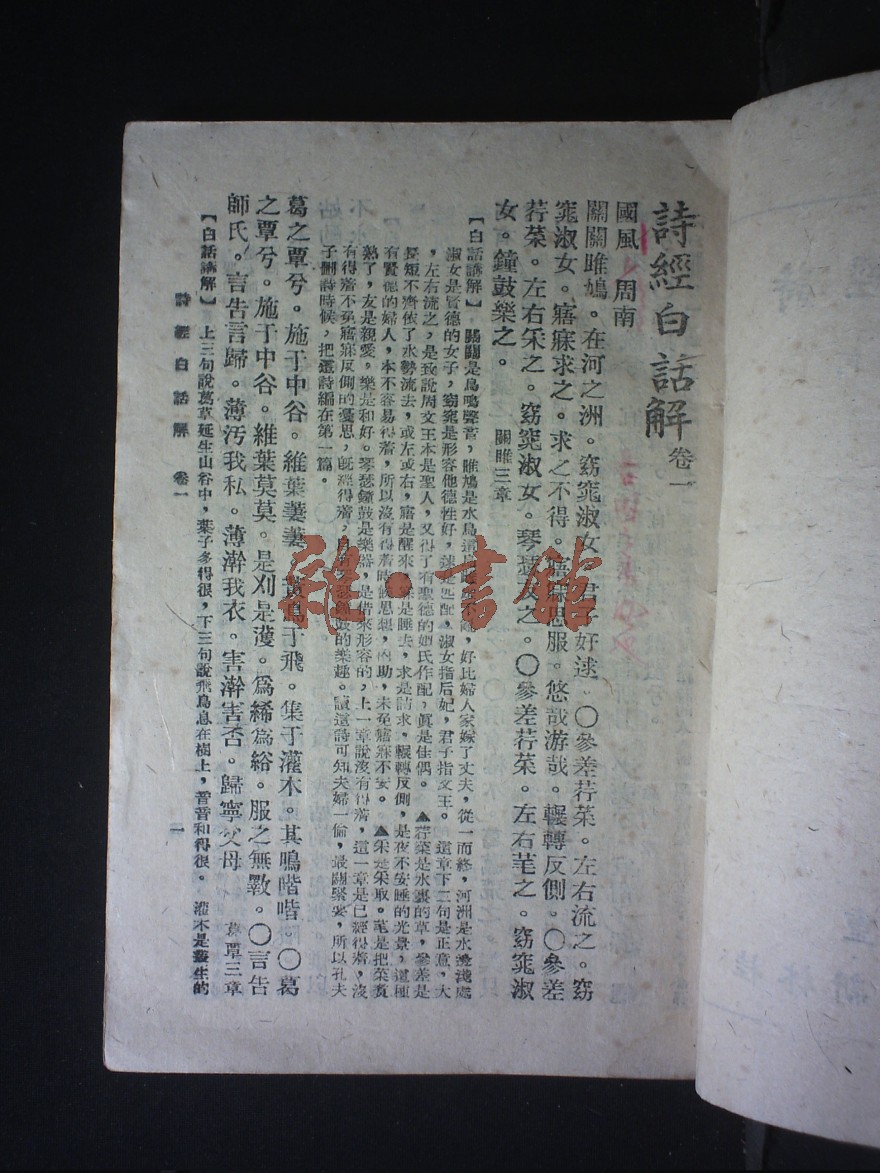 詩經白話解 卷一
國風 周南
關關雎鳩。在河之洲。窈窕淑女。君子好逑。〇參差荇菜。左右流之。窈
窕淑女。寤寐求之。求之不得。寤寐思服。悠哉游哉。輾轉反側。〇參差
荇菜。左右采之。窈窕淑女。琴瑟友之。〇參差荇菜。左右芼之。窈窕淑
女。鐘鼓樂之。 關雎三章
【白話講解】 關關是鳥鳴聲音,雎鳩是水鳥,這,好比婦人家嫁了丈夫,從一而終,河洲是水邊淺處
淑女是賢德的女子,窈窕是形容他德性好,逑是匹配,淑女指后妃,君子指文王。這章下二句是正意,大
,左右流之,是致說周文王本是聖人,又得了有聖德的姒氏作配,眞是佳偶。▲荇菜是水裏的草,參差是
長短不齊依了水勢流去,或左或右,寤是醒來,寐是睡去,求是請求,輾轉反側,是夜不安睡的光景,這種
有賢德的婦人,本不容易得着,所以沒有得着時候思想,內助,未至寤寐不安。▲采是采取。芼是把菜煑
熟了,友是親愛,樂是和好。琴瑟鐘鼓是樂器,是借來形容的,上一章說沒有得着,這一章是已經得着,沒
有得着不免寤寐反側的憂思,旣經得着,自有琴瑟鐘鼓的樂趣。讀這詩可知夫婦一倫,最關緊要,所以孔夫
子刪詩時候,把這詩編在第一篇。
葛之覃兮。施于中谷。維葉萋萋。黃鳥于飛。集于灌木。其鳴喈喈。〇葛
之覃兮。施于中谷。維葉莫莫。是刈是濩。爲絺爲綌。服之無斁。〇言告
師氏。言告言歸。薄汚我私。薄澣我衣。害澣害否。歸寧父母 葛覃三章
【白話講解】 上三句說葛草延生山谷中,葉子多得很,下三句說飛鳥息在樹上,聲音和得很。灌木是叢生的
詩經白話解 卷一 一
雜·書館